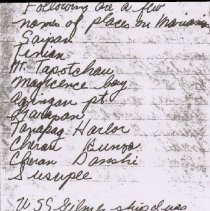 Following are a few
names of places on Marianas
Saipan
Tinian
Mt. Tapotchau
Magicence bay
Agingan pt.
Garapan
Tanapag Harbor
Charan
Charan Danshi
Susupee
U.S.S. Gilmer ship I was